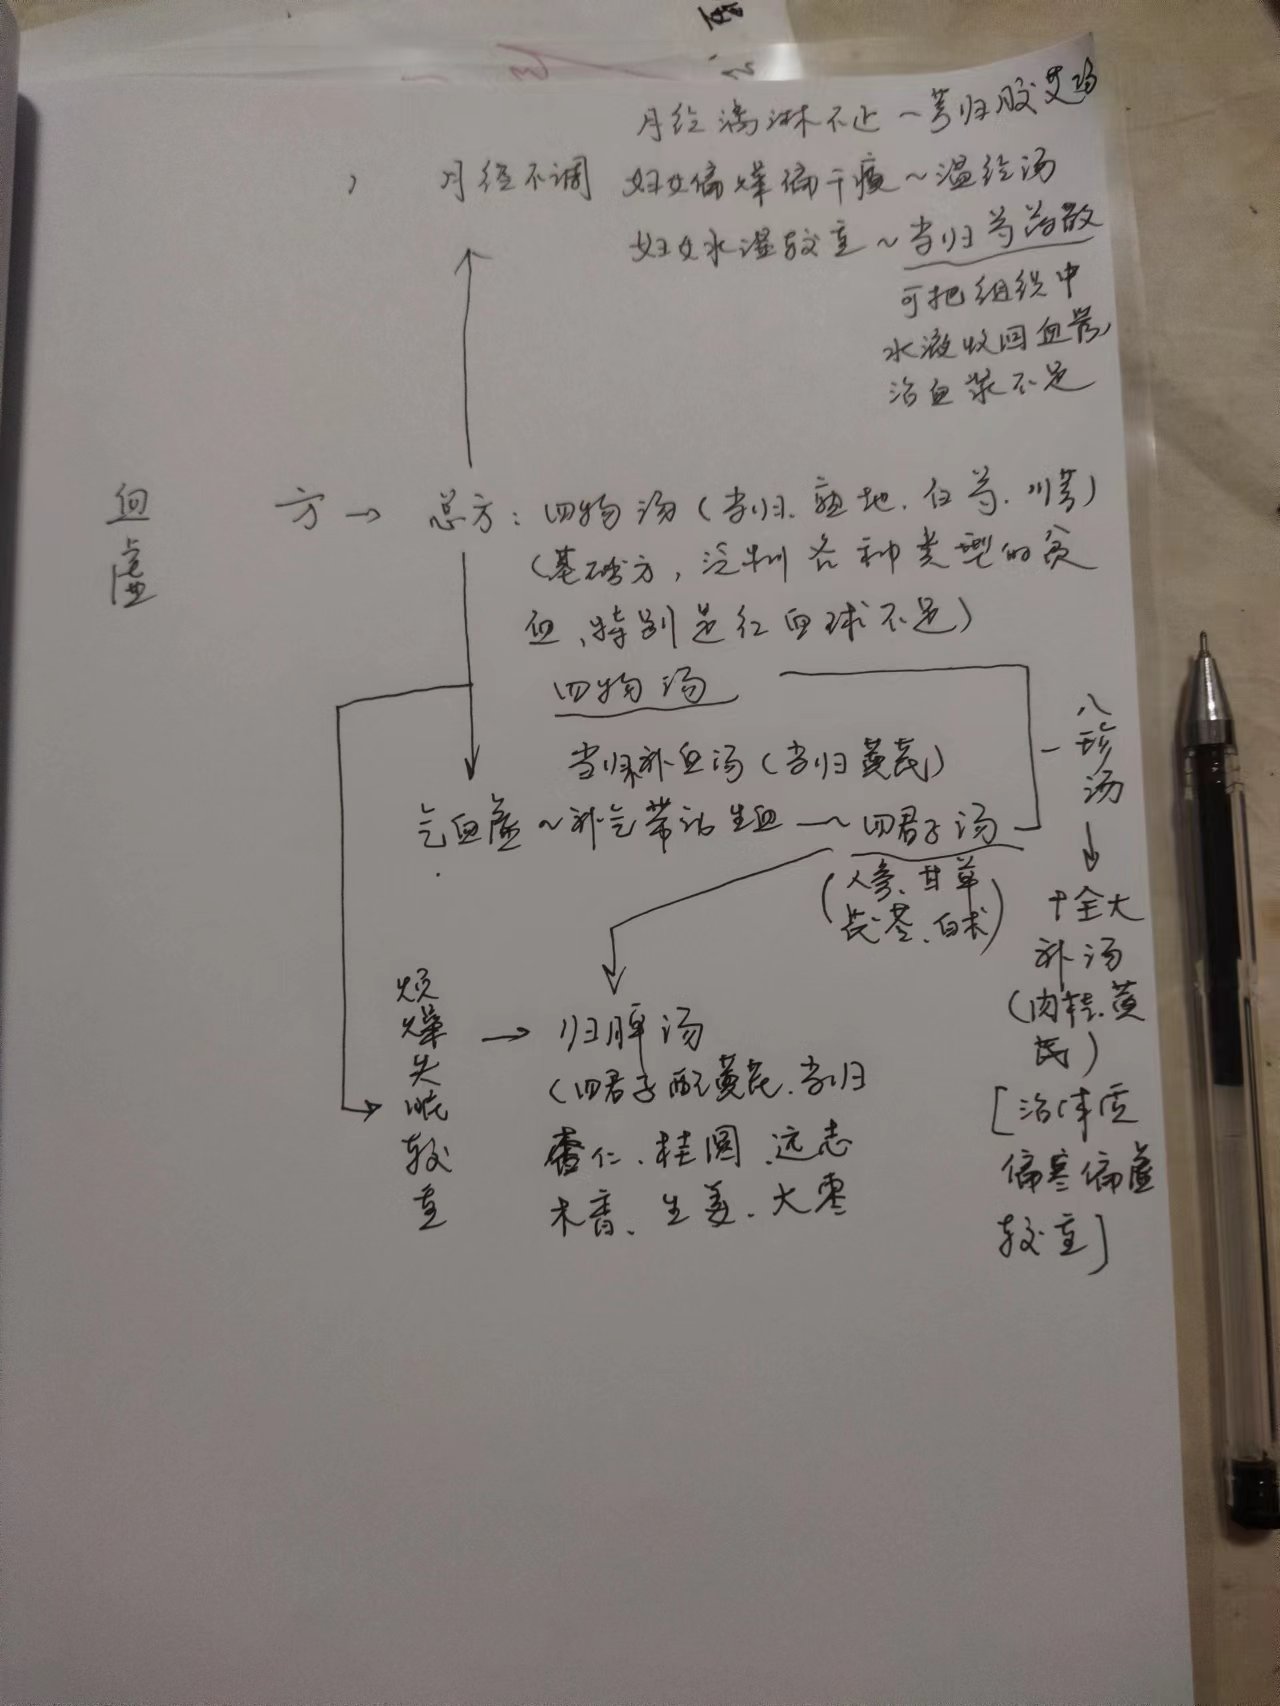 月经漓淋不止～芎归胶艾汤
月经不调
妇女偏燥偏干瘦～温经汤
妇女水湿较重～当归芍药散
可把组织中
水液收回血管,
治血浆不足
血虚
方→总方：四物汤（当归、熟地、白芍、川芎）
（基础方，泛制各种类型的贫
血、特别是红血球不足）
四物汤
当归补血汤（当归黄芪）
气血虚～补气带活生血～四君子汤
（人参、甘草
茯苓、白术）
八珍汤
十全大
补汤
（肉桂、黄
芪）
［治体质
偏寒偏虚
较重］
烦躁失眠较重
→归脾汤
（四君子配黄芪、当归
枣仁、桂圆、远志
木香、生姜、大枣